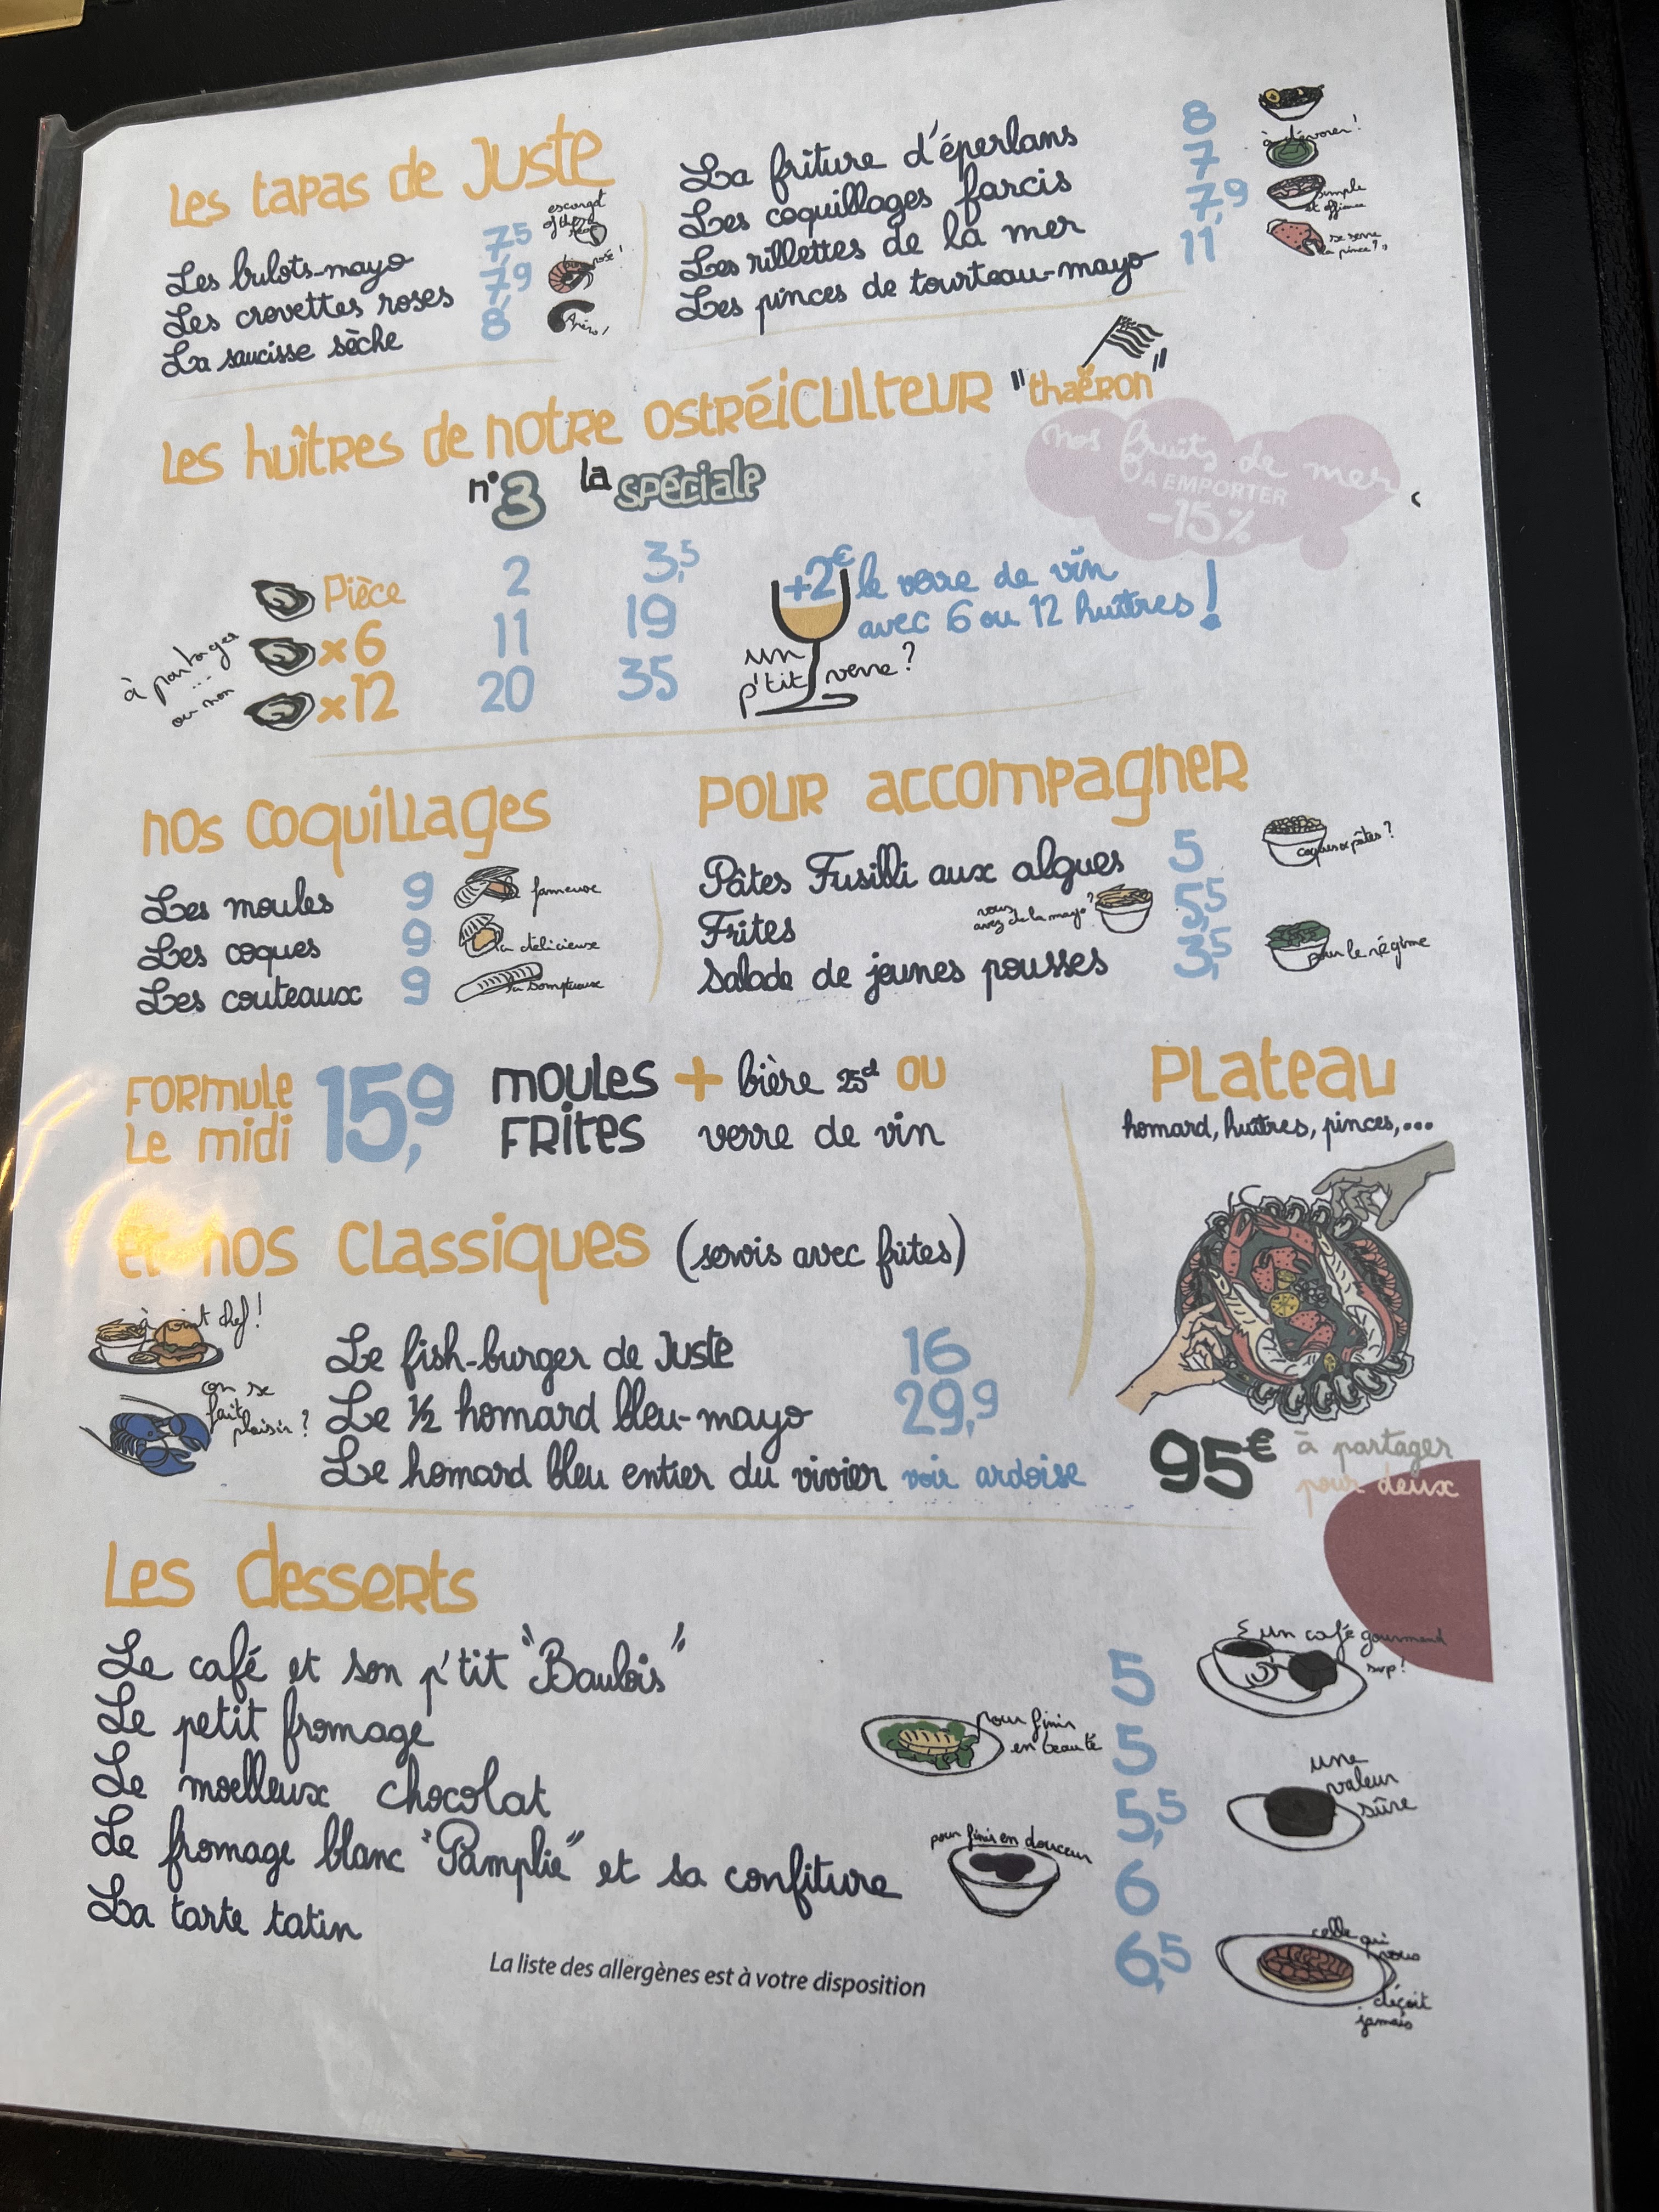 Les tapas de Juste
Les bulots-mayo 7,5
escargot of the sea
Les crevettes roses 7,9
La saucisse sèche 8
La friture d'éperlans 8
à dévorer!
Les coquillages farcis 7
Les rillettes de la mer 7,9
simple et efficace
Les pinces de tourteau-mayo 11
se serre la pince?
Les huîtres de notre ostréiculteur "thaëron"
nos fruits de mer
A EMPORTER
-15%
n°3 la spéciale
Pièce 2 3,5
x6 11 19
x12 20 35
à partager
...
ou non
+2€ le verre de vin
avec 6 ou 12 huîtres!
un p'tit verre?
nos coquillages
Les moules 9 fameuse
Les coques 9 la délicieuse
Les couteaux 9 la somptueuse
Pour accompagner
Pâtes Fusilli aux algues 5
pâtes?
Frites 5,5
vous avez de la mayo?
Salade de jeunes pousses 3,5
pour le régime
Formule le midi 15,9
moules frites + bière 25cl ou verre de vin
Plateau
homard, huîtres, pinces,...
95€ à partager
pour deux
et nos classiques (servis avec frites)
à point chef!
Le fish-burger de Juste 16
on se fait plaisir?
Le 1/2 homard bleu-mayo 29,9
Le homard bleu entier du vivier voir ardoise
Les desserts
Le café et son p'tit "Baulois" 5
un café gourmand svp!
Le petit fromage 5
pour finir en beauté
Le moelleux chocolat 5,5
une valeur sûre
Le fromage blanc "Pamplie" et sa confiture 6
pour finir en douceur
La tarte tatin 6,5
celle qui nous déçoit jamais
La liste des allergènes est à votre disposition